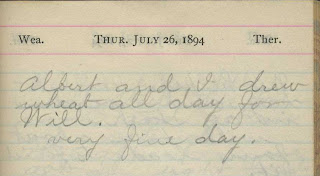 Wea. THUR. JULY 26, 1894 Ther.
Albert and I drew
wheat all day for
Will.
very fine day.